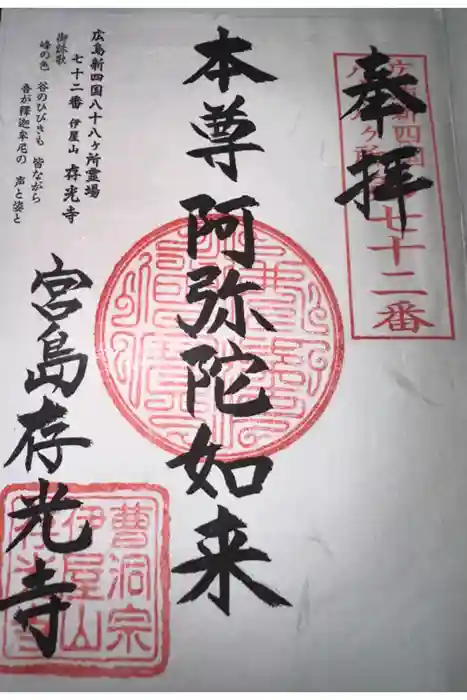 奉拝
広島新四国
八十八ヶ所第七十二番
本尊阿弥陀如来
広島新四国八十八ヶ所霊場
七十二番 伊屋山 存光寺
御詠歌
峰の色 谷のひびきも 皆ながら
吾が釋迦牟尼の 声と姿と
宮島存光寺
曹洞宗
伊屋山
存光寺